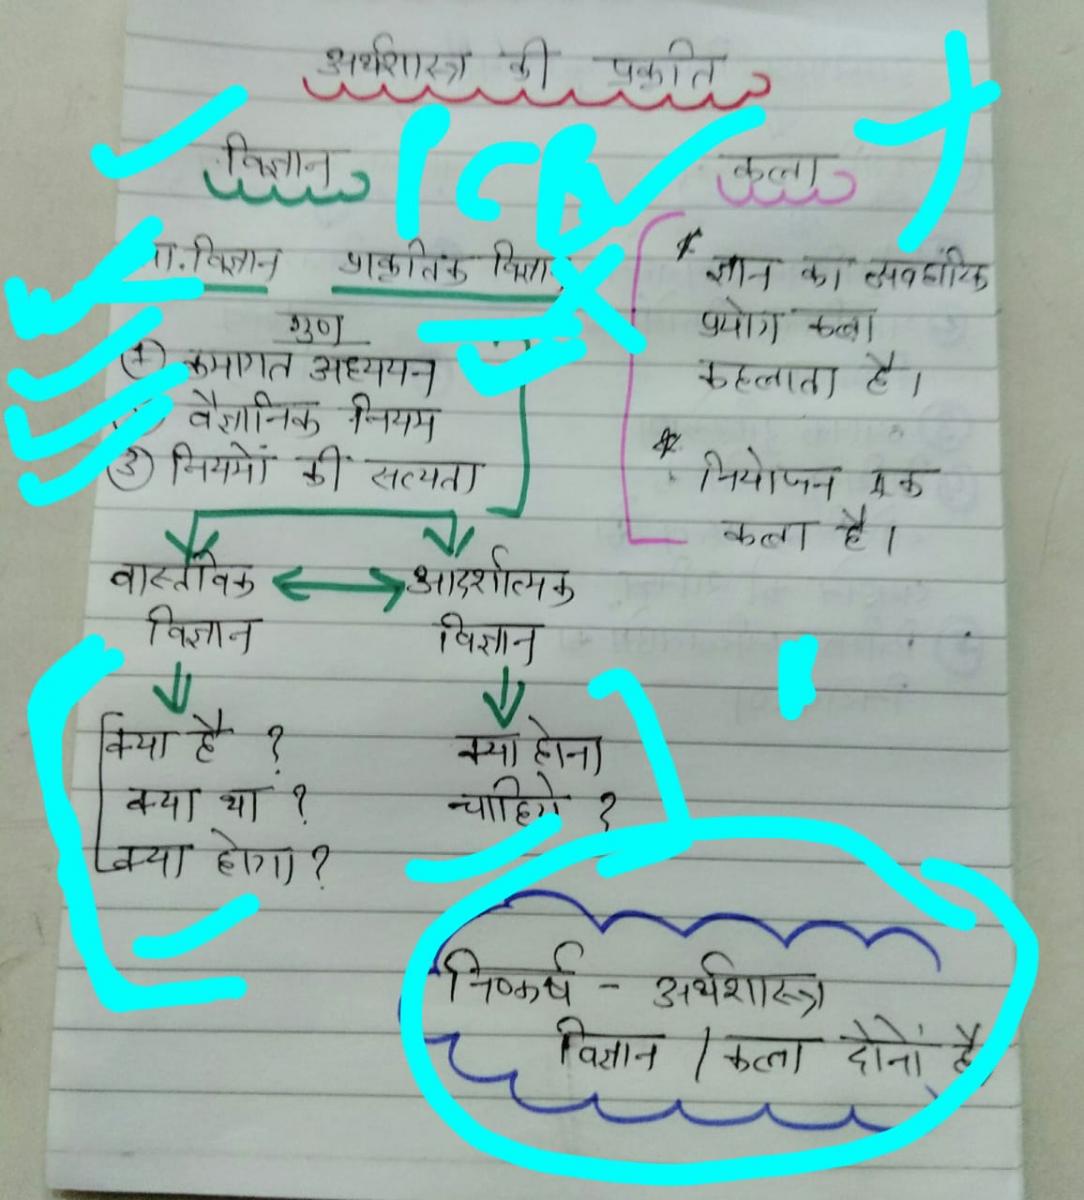 अर्थशास्त्र की प्रकृति
विज्ञान
कला
सा.विज्ञान प्राकृतिक विज्ञान
गुण
① क्रमागत अध्ययन
वैज्ञानिक नियम
③ नियमों की सत्यता
* ज्ञान का व्यवहारिक
प्रयोग कला
कहलाता है।
* नियोजन एक
कला है।
वास्तविक ↔ आदर्शात्मक
विज्ञान विज्ञान
क्या है ? क्या होना
क्या था ? चाहिये ?
क्या होगा ?
निष्कर्ष - अर्थशास्त्र
विज्ञान / कला दोनों है